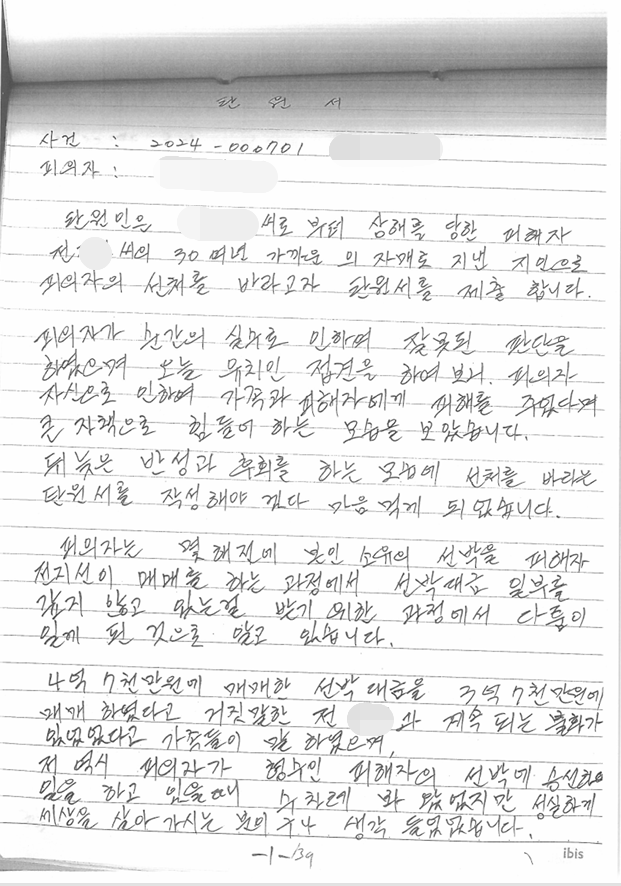 탄 원 서
사건 : 2024-000701
피의자 :
탄원인은 서로 부터 상해를 당한 피해자
전 씨의 30여년 가까운 의자매로 지낸 지인으로
피의자의 선처를 바라고자 탄원서를 제출 합니다.
피의자가 순간의 실수로 인하여 잘못된 판단을
하였으며 오늘 유치인 접견을 하여 보니, 피의자
자신으로 인하여 가족과 피해자에게 피해를 주었다며
큰 자책으로 힘들어 하는 모습을 보았습니다.
뒤늦은 반성과 후회를 하는 모습에 선처를 바라는
탄원서를 작성해야 겠다 마음먹게 되었습니다.
피의자는 몇해전에 본인 소유의 선박을 피해자
전지선이 매매를 하는 과정에서 선박대금 일부를
갚지 않고 있는걸 받기 위한 과정에서 다툼이
일게 된 것으로 알고 있습니다.
4억 7천만원에 매매한 선박 대금을 3억 7천만원에
매매 하였다고 거짓말한 전 과 계속 되는 불화가
있었었다고 가족들이 말 하였으며,
저 역시 피의자가 형수인 피해자의 선박에 승선하여
일을 하고 있을때 수차례 봐 왔었지만 성실하게
세상을 살아 가시는 분이구나 생각 들었었습니다.
-1-/39
ibis